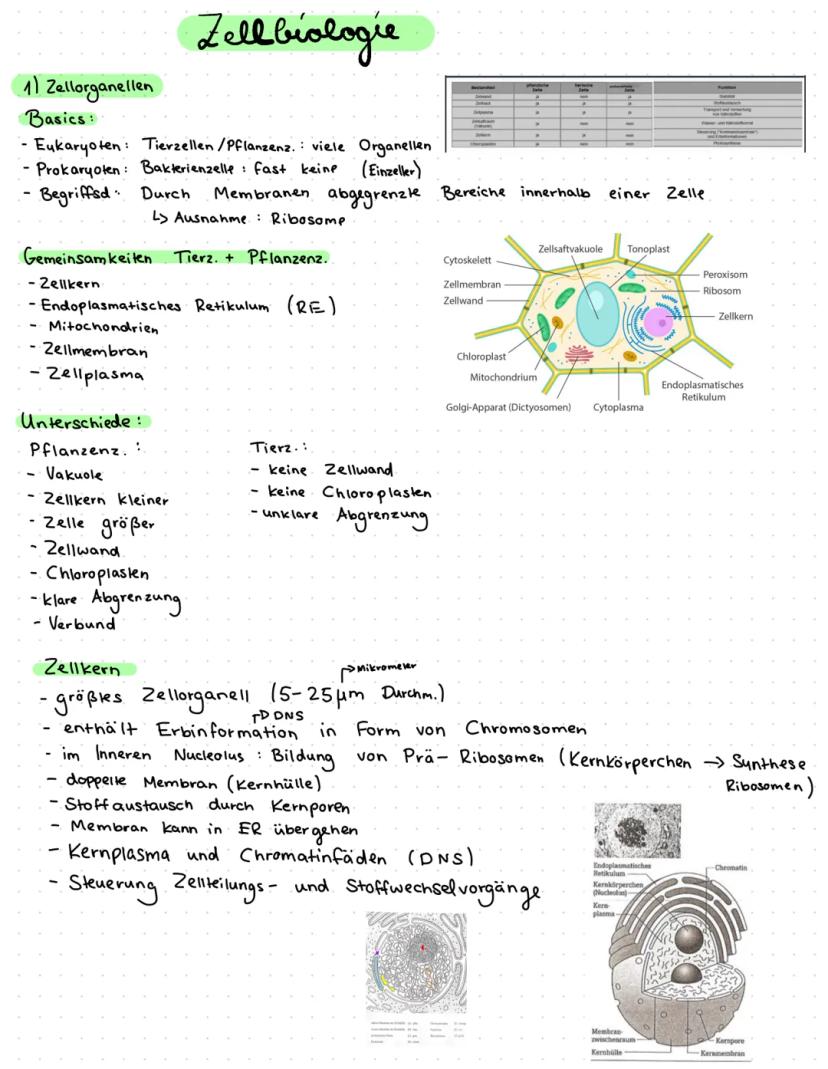 Zellbiologie
1) Zellorganellen
Basics:
- Eukaryoten: Tierzellen/Pflanzenz.: viele Organellen
- Prokaryoten: Bakterienzelle: fast keine (Einzeller)
- Begriffsd.: Durch Membranen abgegrenzte Bereiche innerhalb einer Zelle
↳ Ausnahme: Ribosome
Bestandteil pflanzliche Zelle tierische Zelle Zelle Funktion
Zellwand ja nein ja Stabilität
Zellhaut ja ja ja Stoffaustausch
Zellplasma ja ja ja Transport und Verwertung von Nährstoffen
Zellsaftraum (Vakuole) ja nein nein
Zellkern ja ja nein
Chloroplasten ja nein nein Photosynthese
Gemeinsamkeiten Tierz. + Pflanzenz.
- Zellkern
- Endoplasmatisches Retikulum (RE)
- Mitochondrien
- Zellmembran
- Zellplasma
Cytoskelett
Zellsaftvakuole
Tonoplast
Zellmembran
Zellwand
Peroxisom
Ribosom
Zellkern
Chloroplast
Mitochondrium
Golgi-Apparat (Dictyosomen)
Cytoplasma
Endoplasmatisches
Retikulum
Unterschiede:
Pflanzenz.:
- Vakuole
- Zellkern kleiner
- Zelle größer
- Zellwand
- Chloroplasten
- klare Abgrenzung
- Verbund
Tierz.:
- keine Zellwand
- keine Chloroplasten
- unklare Abgrenzung
Zellkern
→ Mikrometer
- größtes Zellorganell (5-25µm Durchm.)
→ DNS
- enthält Erbinformation in Form von Chromosomen
- im Inneren Nucleolus: Bildung von Prä-Ribosomen (Kernkörperchen → Synthese
Ribosomen)
- doppelte Membran (Kernhülle)
- Stoffaustausch durch Kernporen
- Membran kann in ER übergehen
- Kernplasma und Chromatinfäden (DNS)
- Steuerung Zellteilungs- und Stoffwechselvorgänge
Endoplasmatisches
Retikulum
Kernkörperchen
(Nucleolus)
Kern-
plasma
Chromatin
Membran-
zwischenraum
Kernhülle
Kernpore
Kernmembran